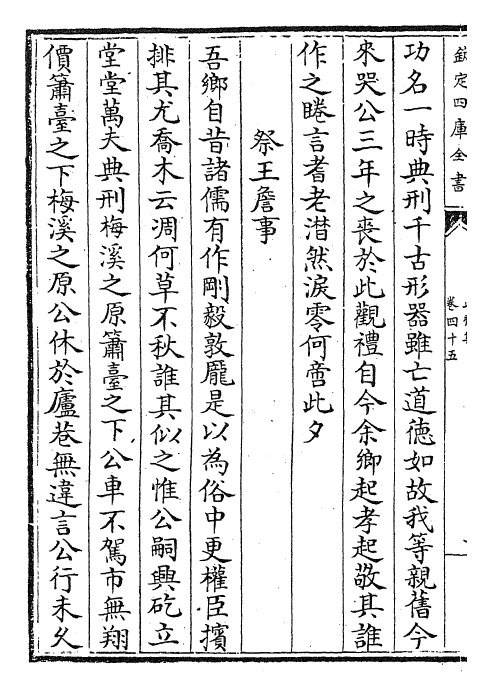 欽定四庫全書
卷四十五
功名一時典刑千古形器雖亡道德如故我等親舊今
來哭公三年之喪於此觀禮自今余鄉起孝起敬其誰
作之睠言耆老潸然淚零何啻此夕
祭王詹事
吾鄉自昔諸儒有作剛毅敦龎是以為俗中更權臣擯
排其尤喬木云凋何草不秋誰其似之惟公嗣興矻立
堂堂萬夫典刑梅溪之原簫臺之下公車不駕市無翔
價簫臺之下梅溪之原公休於廬巷無違言公行未乆